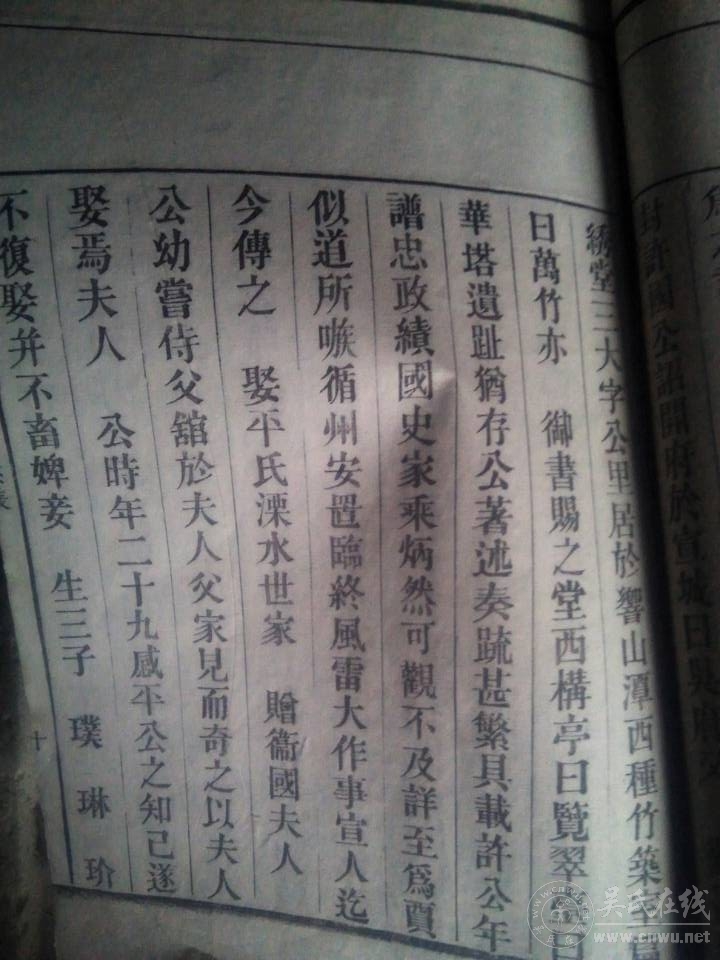 封許國公詔開府於宣城曰吳府
繡堂三大字公里居於響山潭西種竹築室
曰萬竹亦 御書賜之堂西構亭曰覽翠
華塔遺趾猶存公著述奏疏甚繁具載許公年
譜忠政績國史家乘炳然可觀不及詳至爲賈
似道所嗾循州安置臨終風雷大作事宣人迄
今傳之 娶平氏溧水世家 贈衞國夫人
公幼嘗侍父舘於夫人父家見而奇之以夫人
娶焉夫人 公時年二十九感平公之知己遂
不復娶并不畜婢妾 生三子 璞 琳 玠
十
吳氏在线
www.cnwu.net